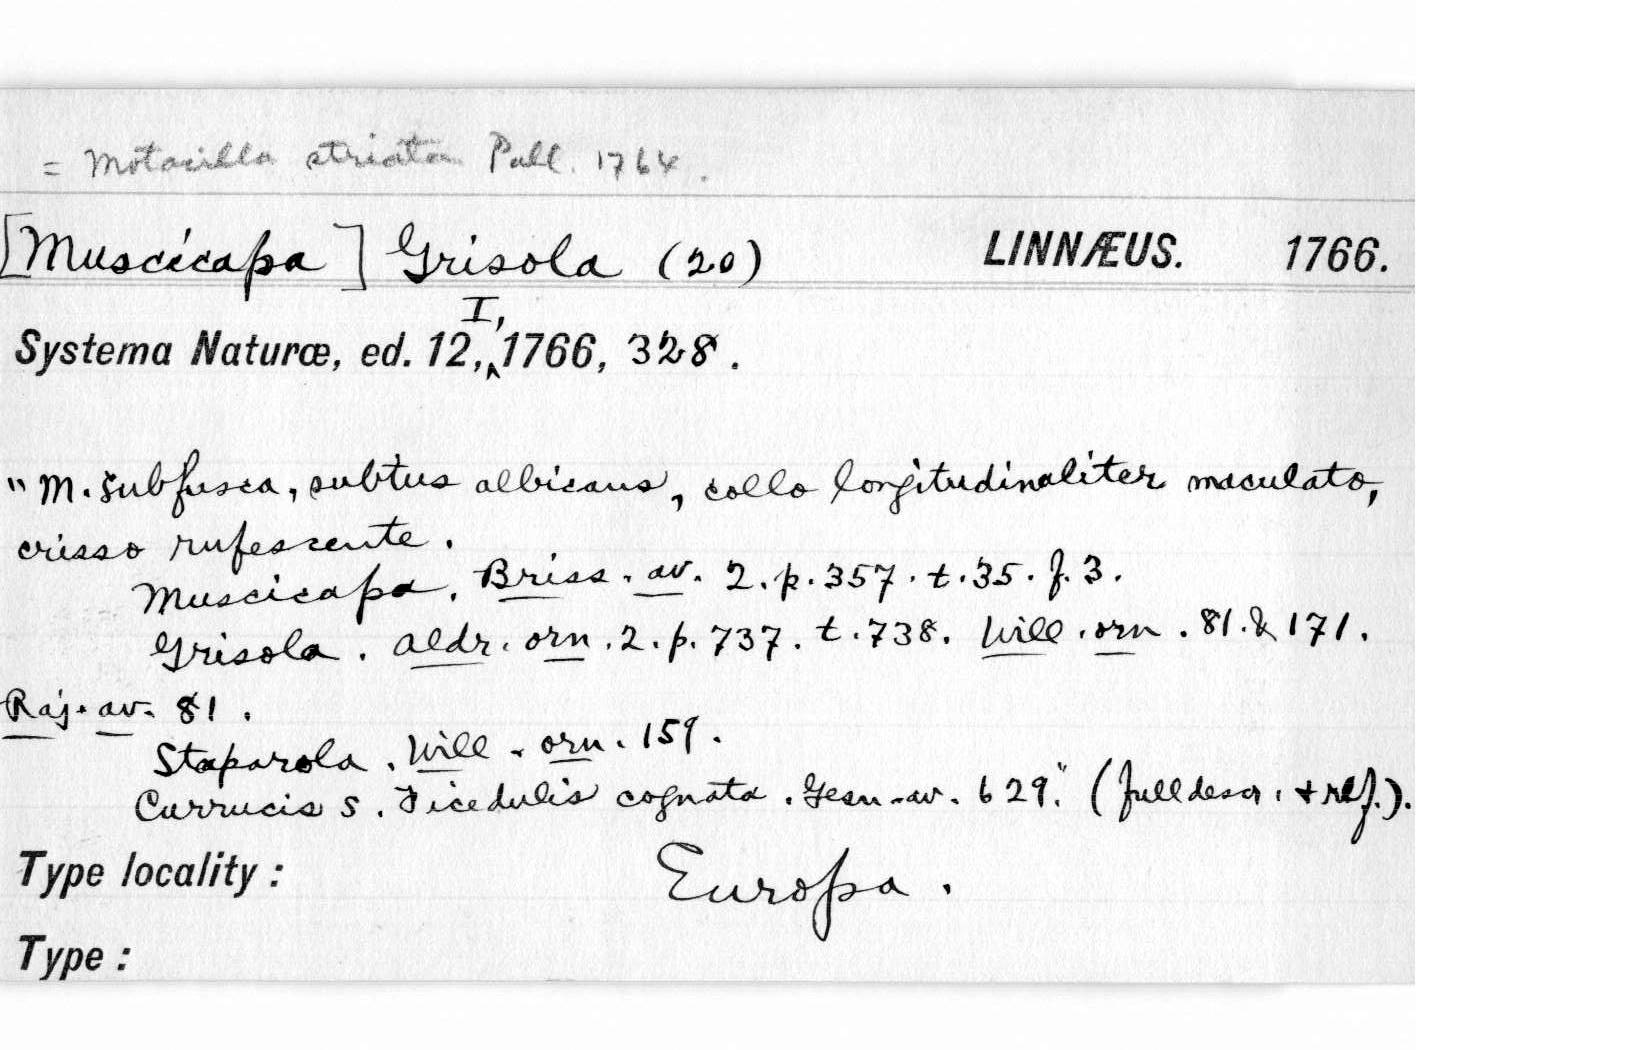 = Motacilla striata Pall. 1764.
[Muscicapa] Grisola (20) LINNÆUS. 1766.
I,
Systema Naturæ, ed. 12,^1766, 328.
"M. subfusca, subtus albicans, collo longitudinaliter maculato,
crisso rufescente.
Muscicapa. Briss. av. 2. p. 357. t. 35. f. 3.
Grisola. aldr. orn. 2. p. 737. t. 738. Will. orn. 81. & 171.
Raj. av. 81.
Staparola. Will. orn. 159.
Currucis s. Ficedulis cognata. Gesn. av. 629." (full descr. + ref.).
Type locality: Europa.
Type: